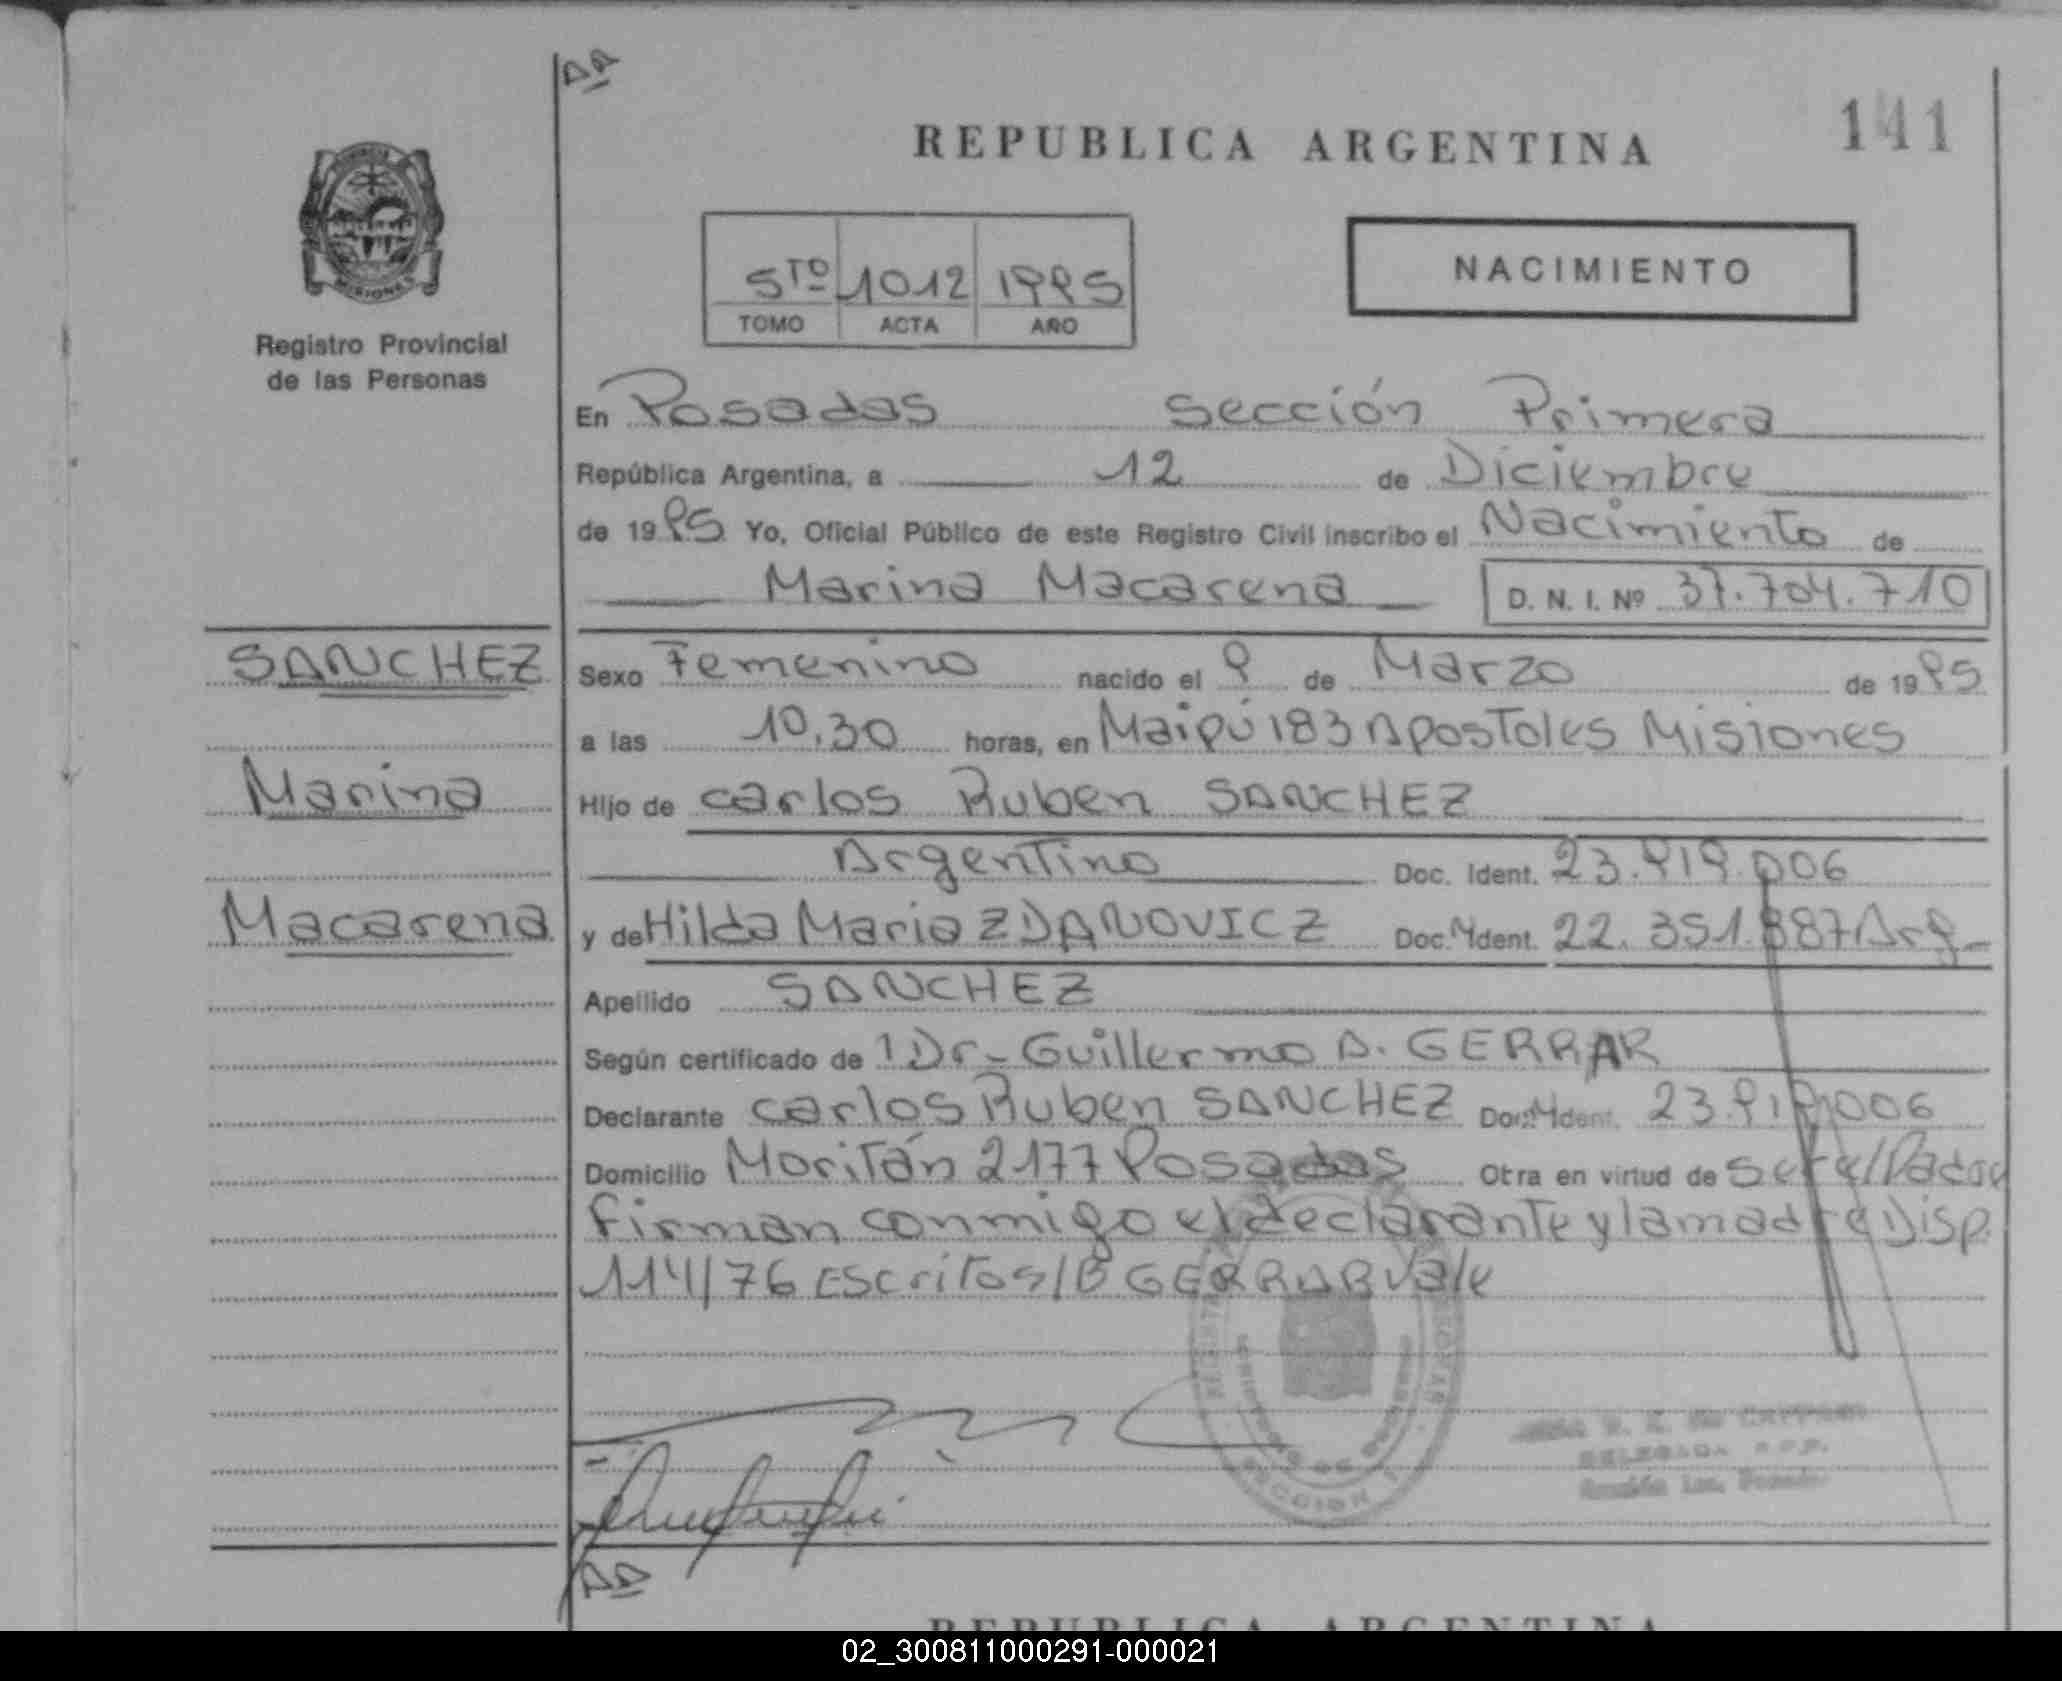 AA
REPUBLICA ARGENTINA
141
MISIONES
Registro Provincial
de las Personas
5TO 1012 1995
TOMO ACTA AÑO
NACIMIENTO
En Posadas Sección Primera
República Argentina, a 12 de Diciembre
de 1995 Yo, Oficial Público de este Registro Civil inscribo el Nacimiento de
Marina Macarena D. N. I. Nº 37.704.710
SANCHEZ
Marina
Macarena
Sexo Femenino nacido el 9 de Marzo de 1995
a las 10,30 horas, en Maipú 183 Apostoles Misiones
Hijo de Carlos Ruben SANCHEZ
Argentino Doc. Ident. 23.919.006
y de Hilda Maria ZDANOVICZ Doc. Ident. 22.351.887 Arg.
Apellido SANCHEZ
Según certificado de 1 Dr. Guillermo A. GERRAR
Declarante Carlos Ruben SANCHEZ Doc. Ident. 23.919.006
Domicilio Moritán 2177 Posadas Otra en virtud de ser el Padre
Firman conmigo el declarante y la madre Disp.
114/76 Escrito s/B GERRAR Vale
SECCION 1
DELEGADA R.P.P.
AA
REPUBLICA ARGENTINA
02_300811000291-000021